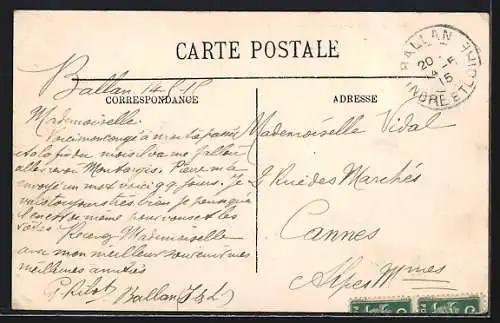 CARTE POSTALE
BALLAN
20
4 -5
15
INDRE ET LOIRE
Ballan 14-5-15
CORRESPONDANCE
ADRESSE
Mademoiselle
Voici mon congé à moitié passé
et à la fin du mois il va me falloir
aller revoir Montargis. Pierre m'a
envoyé un mot voici qq jours. Je
vais toujours très bien je pense que
il en est de même pour vous et les
vôtres. Recevez Mademoiselle
avec mon meilleur souvenir mes
meilleures amitiés
Ballan I & L
Mademoiselle Vidal
2 Rue des Marchés
Cannes
Alpes Mmes